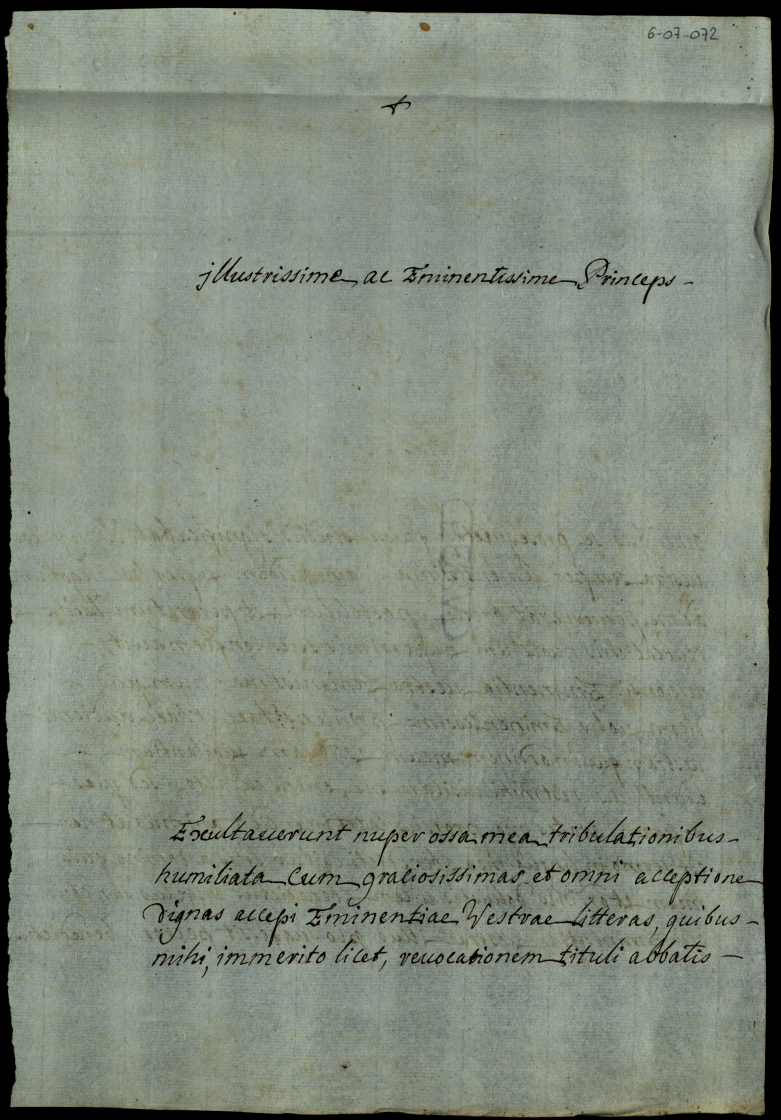 6-07-072
+
jllustrissime ac Eminentissime Princeps -
Exultauerunt nuper ossa mea tribulationibus -
humiliata cum graciosissimas et omni acceptione
dignas accepi Eminentiae Vestrae Litteras, quibus -
mihi, immerito licet, reuocationem tituli abbatis -